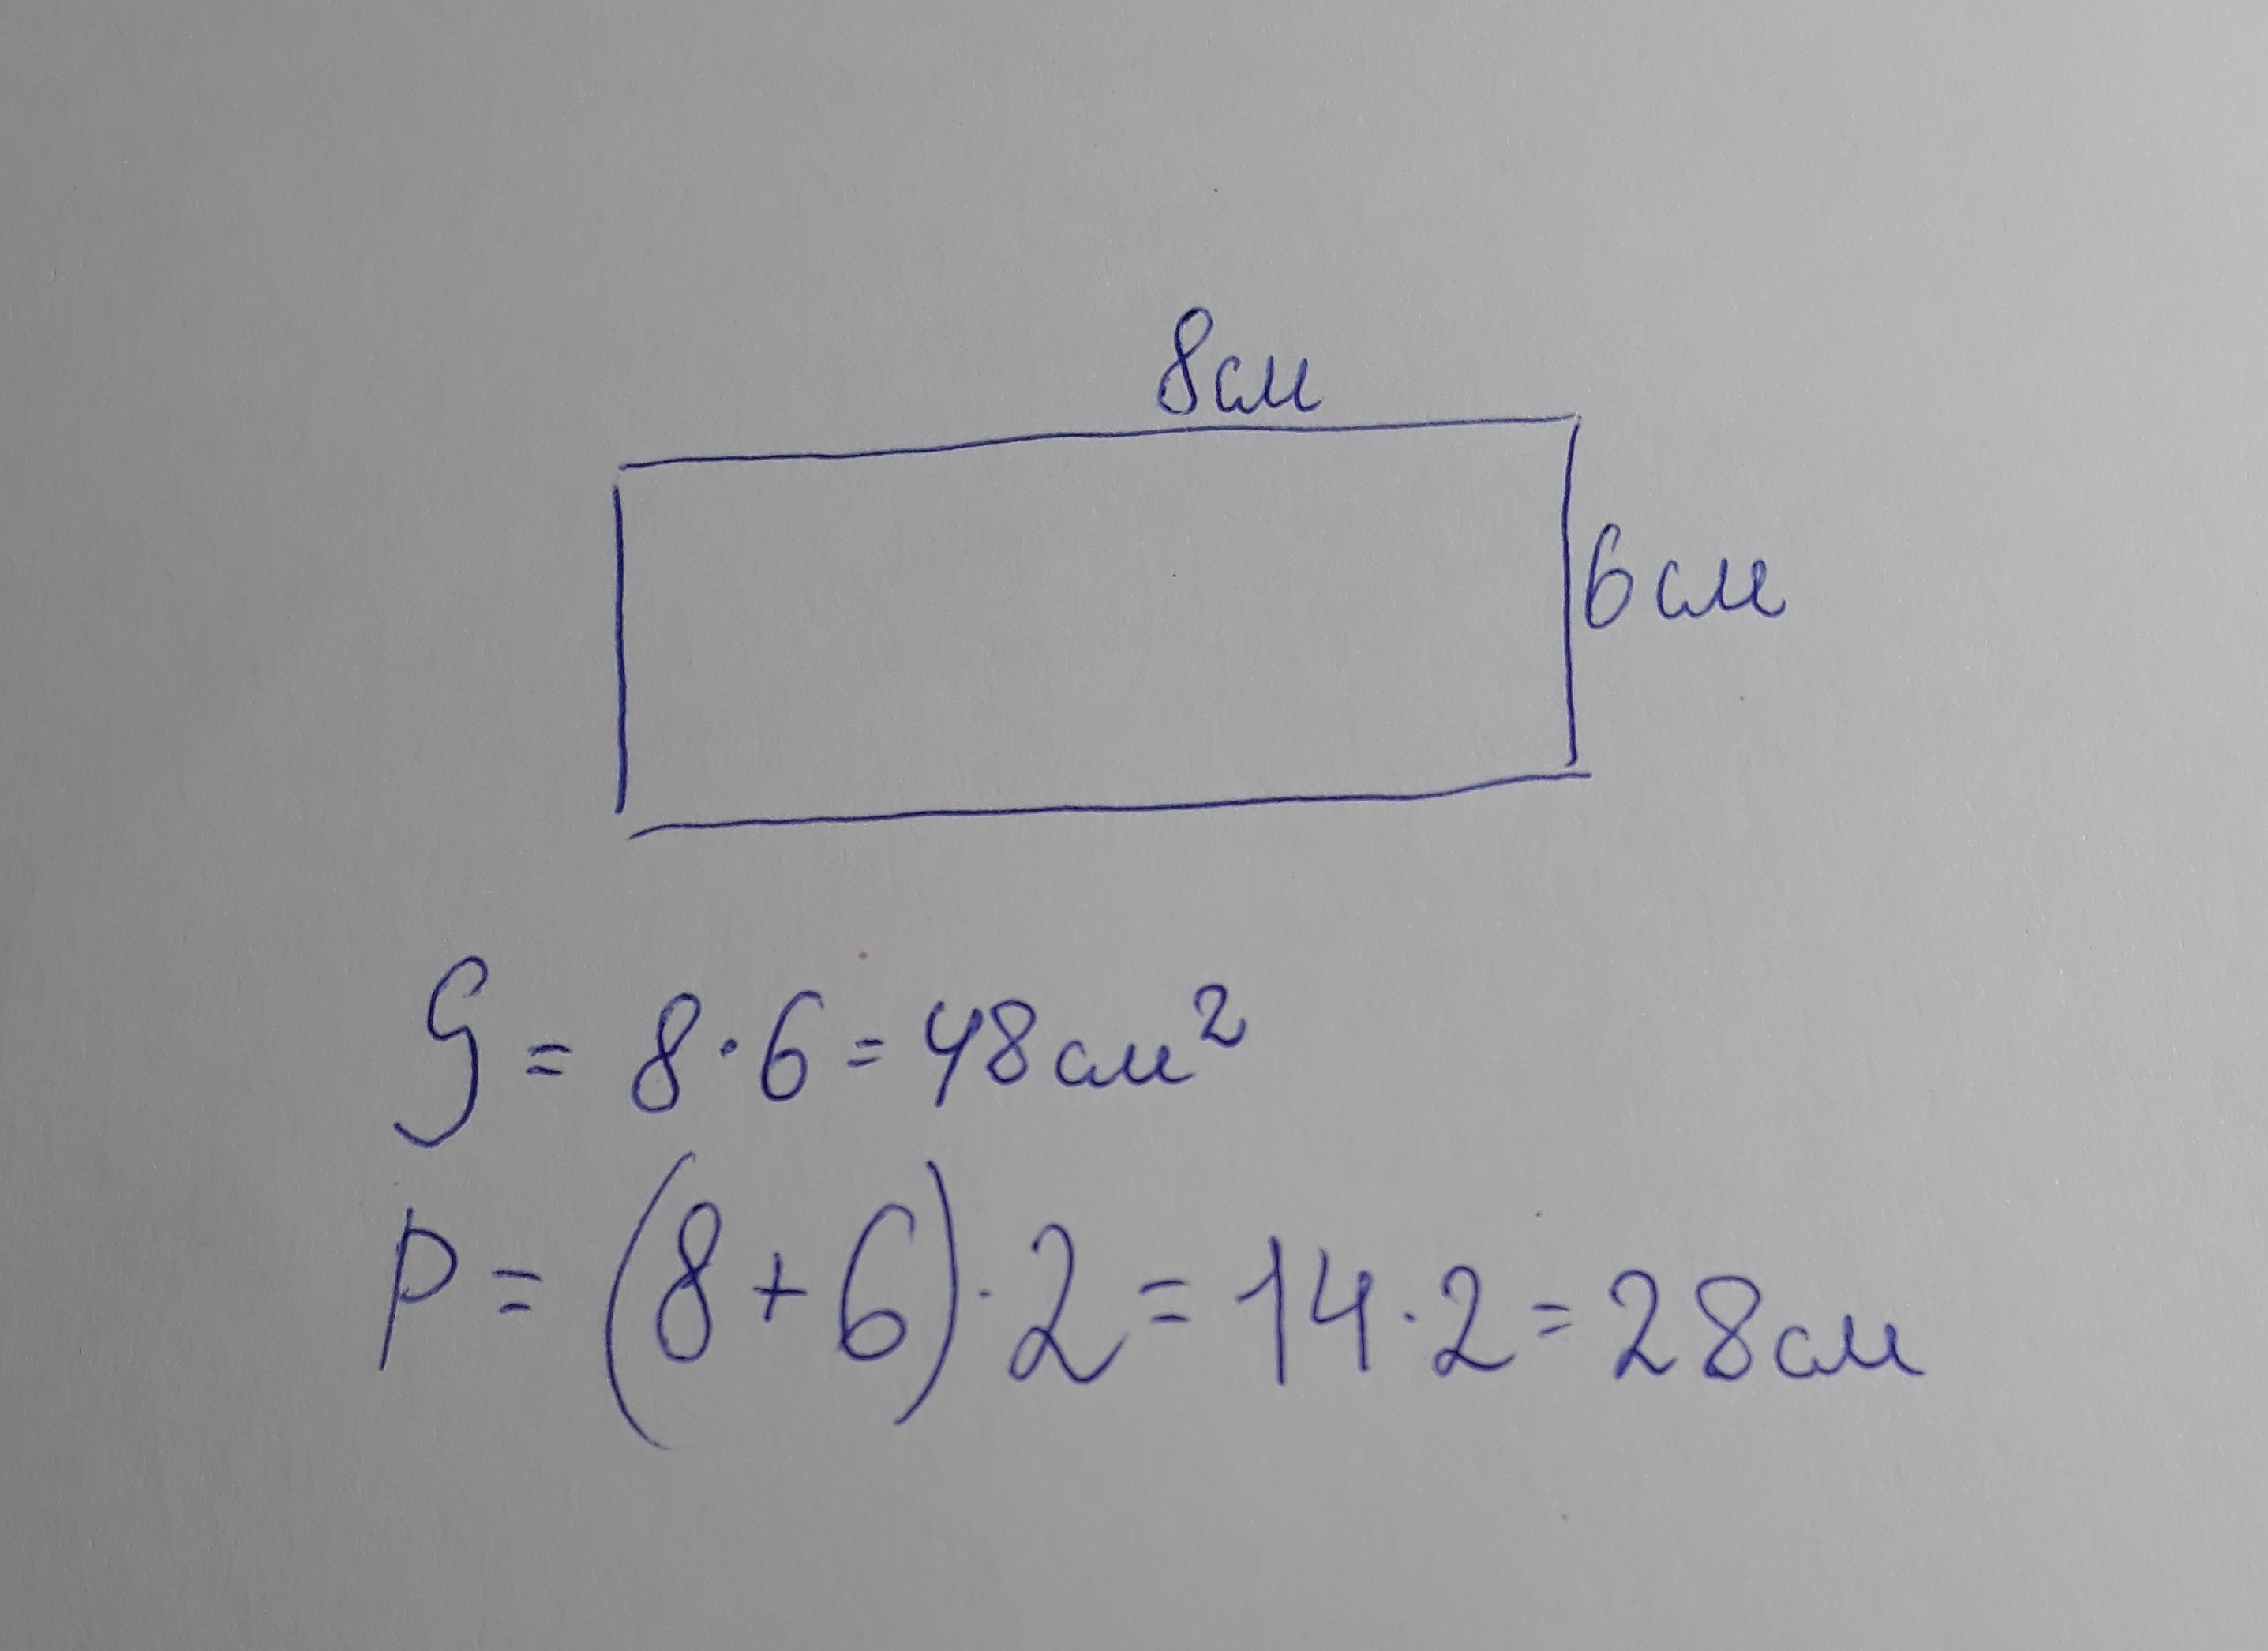 8см
6см
S = 8·6 = 48см²
P = (8+6)·2 = 14·2 = 28см